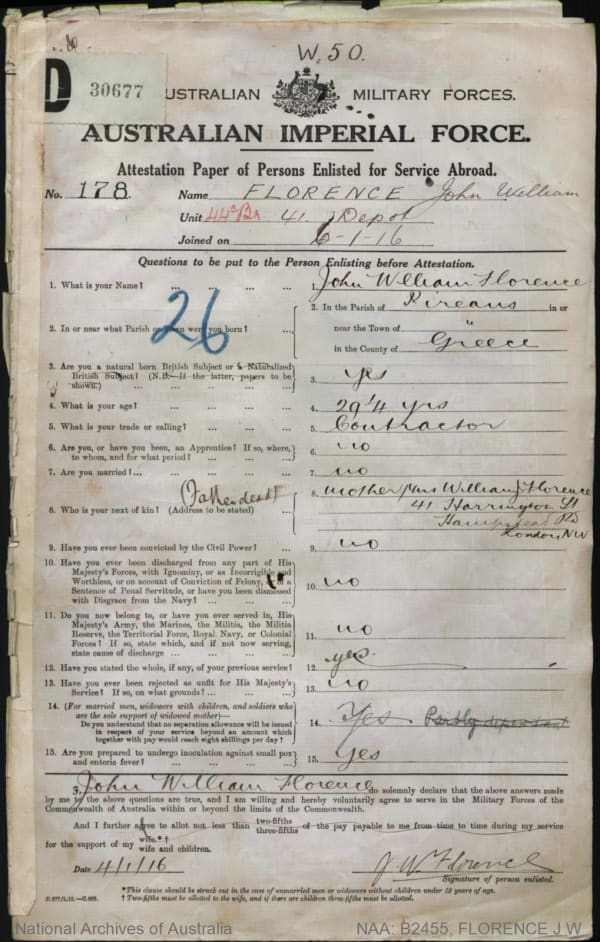 W. 50.
D 30677
AUSTRALIAN MILITARY FORCES.
AUSTRALIAN IMPERIAL FORCE.
Attestation Paper of Persons Enlisted for Service Abroad.
No. 178. Name FLORENCE John William
Unit 44th Bn 41. Depot
Joined on 6-1-16
Questions to be put to the Person Enlisting before Attestation.
1. What is your Name? ... ... ... 1. John William Florence
26
2. In or near what Parish or Town were you born? ... 2. In the Parish of Pireaus in or
near the Town of "
in the County of Greece
3. Are you a natural born British Subject or a Naturalized
British Subject? (N.B.—If the latter, papers to be
shown.) ... ... ... ... 3. yes
4. What is your age? ... ... ... ... 4. 29 4/12 yrs
5. What is your trade or calling? ... ... ... 5. Contractor
6. Are you, or have you been, an Apprentice? If so, where,
to whom, and for what period? ... ... ... 6. no
7. Are you married? ... ... ... ... 7. no
(Father dead)
8. Who is your next of kin? (Address to be stated) ... 8. mother Mrs William J Florence
41 Harrington St
Hampstead Rd
London, NW
9. Have you ever been convicted by the Civil Power? ... 9. no
10. Have you ever been discharged from any part of His
Majesty's Forces, with Ignominy, or as Incorrigible and
Worthless, or on account of Conviction of Felony, or of a
Sentence of Penal Servitude, or have you been dismissed
with Disgrace from the Navy? ... ... ... 10. no
11. Do you now belong to, or have you ever served in, His
Majesty's Army, the Marines, the Militia, the Militia
Reserve, the Territorial Force, Royal Navy, or Colonial
Forces? If so, state which, and if not now serving,
state cause of discharge ... ... ... 11. no
12. Have you stated the whole, if any, of your previous service? 12. yes
13. Have you ever been rejected as unfit for His Majesty's
Service? If so, on what grounds? ... ... ... 13. no
14. (For married men, widowers with children, and soldiers who
are the sole support of widowed mother)—
Do you understand that no separation allowance will be issued
in respect of your service beyond an amount which
together with pay would reach eight shillings per day? 14. Yes Partly dependant
15. Are you prepared to undergo inoculation against small pox
and enteric fever? ... ... ... ... 15. Yes
I, John William Florence do solemnly declare that the above answers made
by me to the above questions are true, and I am willing and hereby voluntarily agree to serve in the Military Forces of the
Commonwealth of Australia within or beyond the limits of the Commonwealth.
And I further agree to allot not less than two-fifths three-fifths of the pay payable to me from time to time during my service
for the support of my wife.*† wife and children.
Date 4/1/16 J. W. Florence
Signature of person enlisted.
*This clause should be struck out in the case of unmarried men or widowers without children under 18 years of age.
† Two-fifths must be allotted to the wife, and if there are children three-fifths must be allotted.
National Archives of Australia NAA: B2455, FLORENCE J W